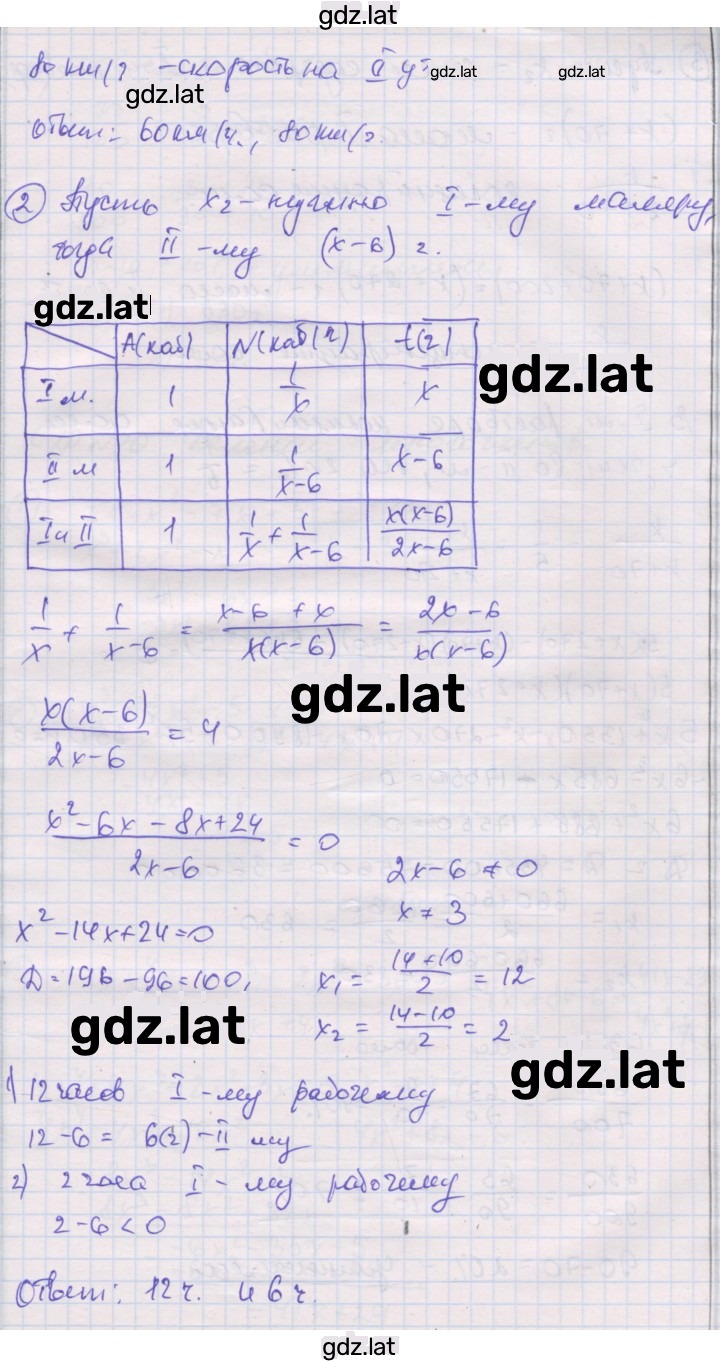 gdz.lat
80 км/ч - скорость на II у
gdz.lat gdz.lat
gdz.lat
Ответ: 60 км/ч., 80 км/ч.
2 Пусть x ч - нужно I-му маляру,
тогда II-му (x-6) ч.
gdz.lat
A(каб) N(каб/ч) t(ч)
I м. 1 1/x x
gdz.lat
II м 1 1/x-6 x-6
I и II 1 1/x + 1/x-6 x(x-6)/2x-6
1/x + 1/x-6 = x-6+x/x(x-6) = 2x-6/x(x-6)
gdz.lat
x(x-6)/2x-6 = 4
x²-6x-8x+24/2x-6 = 0
2x-6≠0
x≠3
x²-14x+24=0
D=196-96=100, x₁= 14+10/2 = 12
gdz.lat
x₂ = 14-10/2 = 2
gdz.lat
1) 12 часов I-му рабочему
12-6 = 6(ч) - II му
2) 2 часа I-му рабочему
2-6<0
Ответ: 12 ч. и 6 ч.
gdz.lat